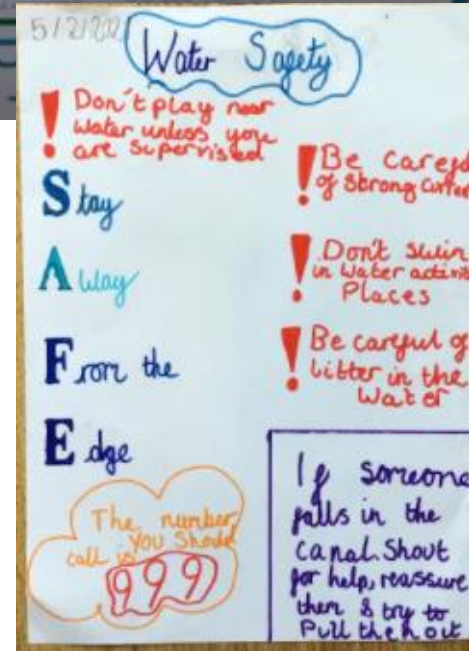 5/2/202
Water Safety
Don't play near
water unless you
are supervised
Stay
Away
From the
Edge
The number
you should
call is
999
Be careful
of strong
Don't swim
in water
Places
Be careful of
litter in the
water
If someone
falls in the
canal. Shout
for help, reassure
them & try to
Pull them out